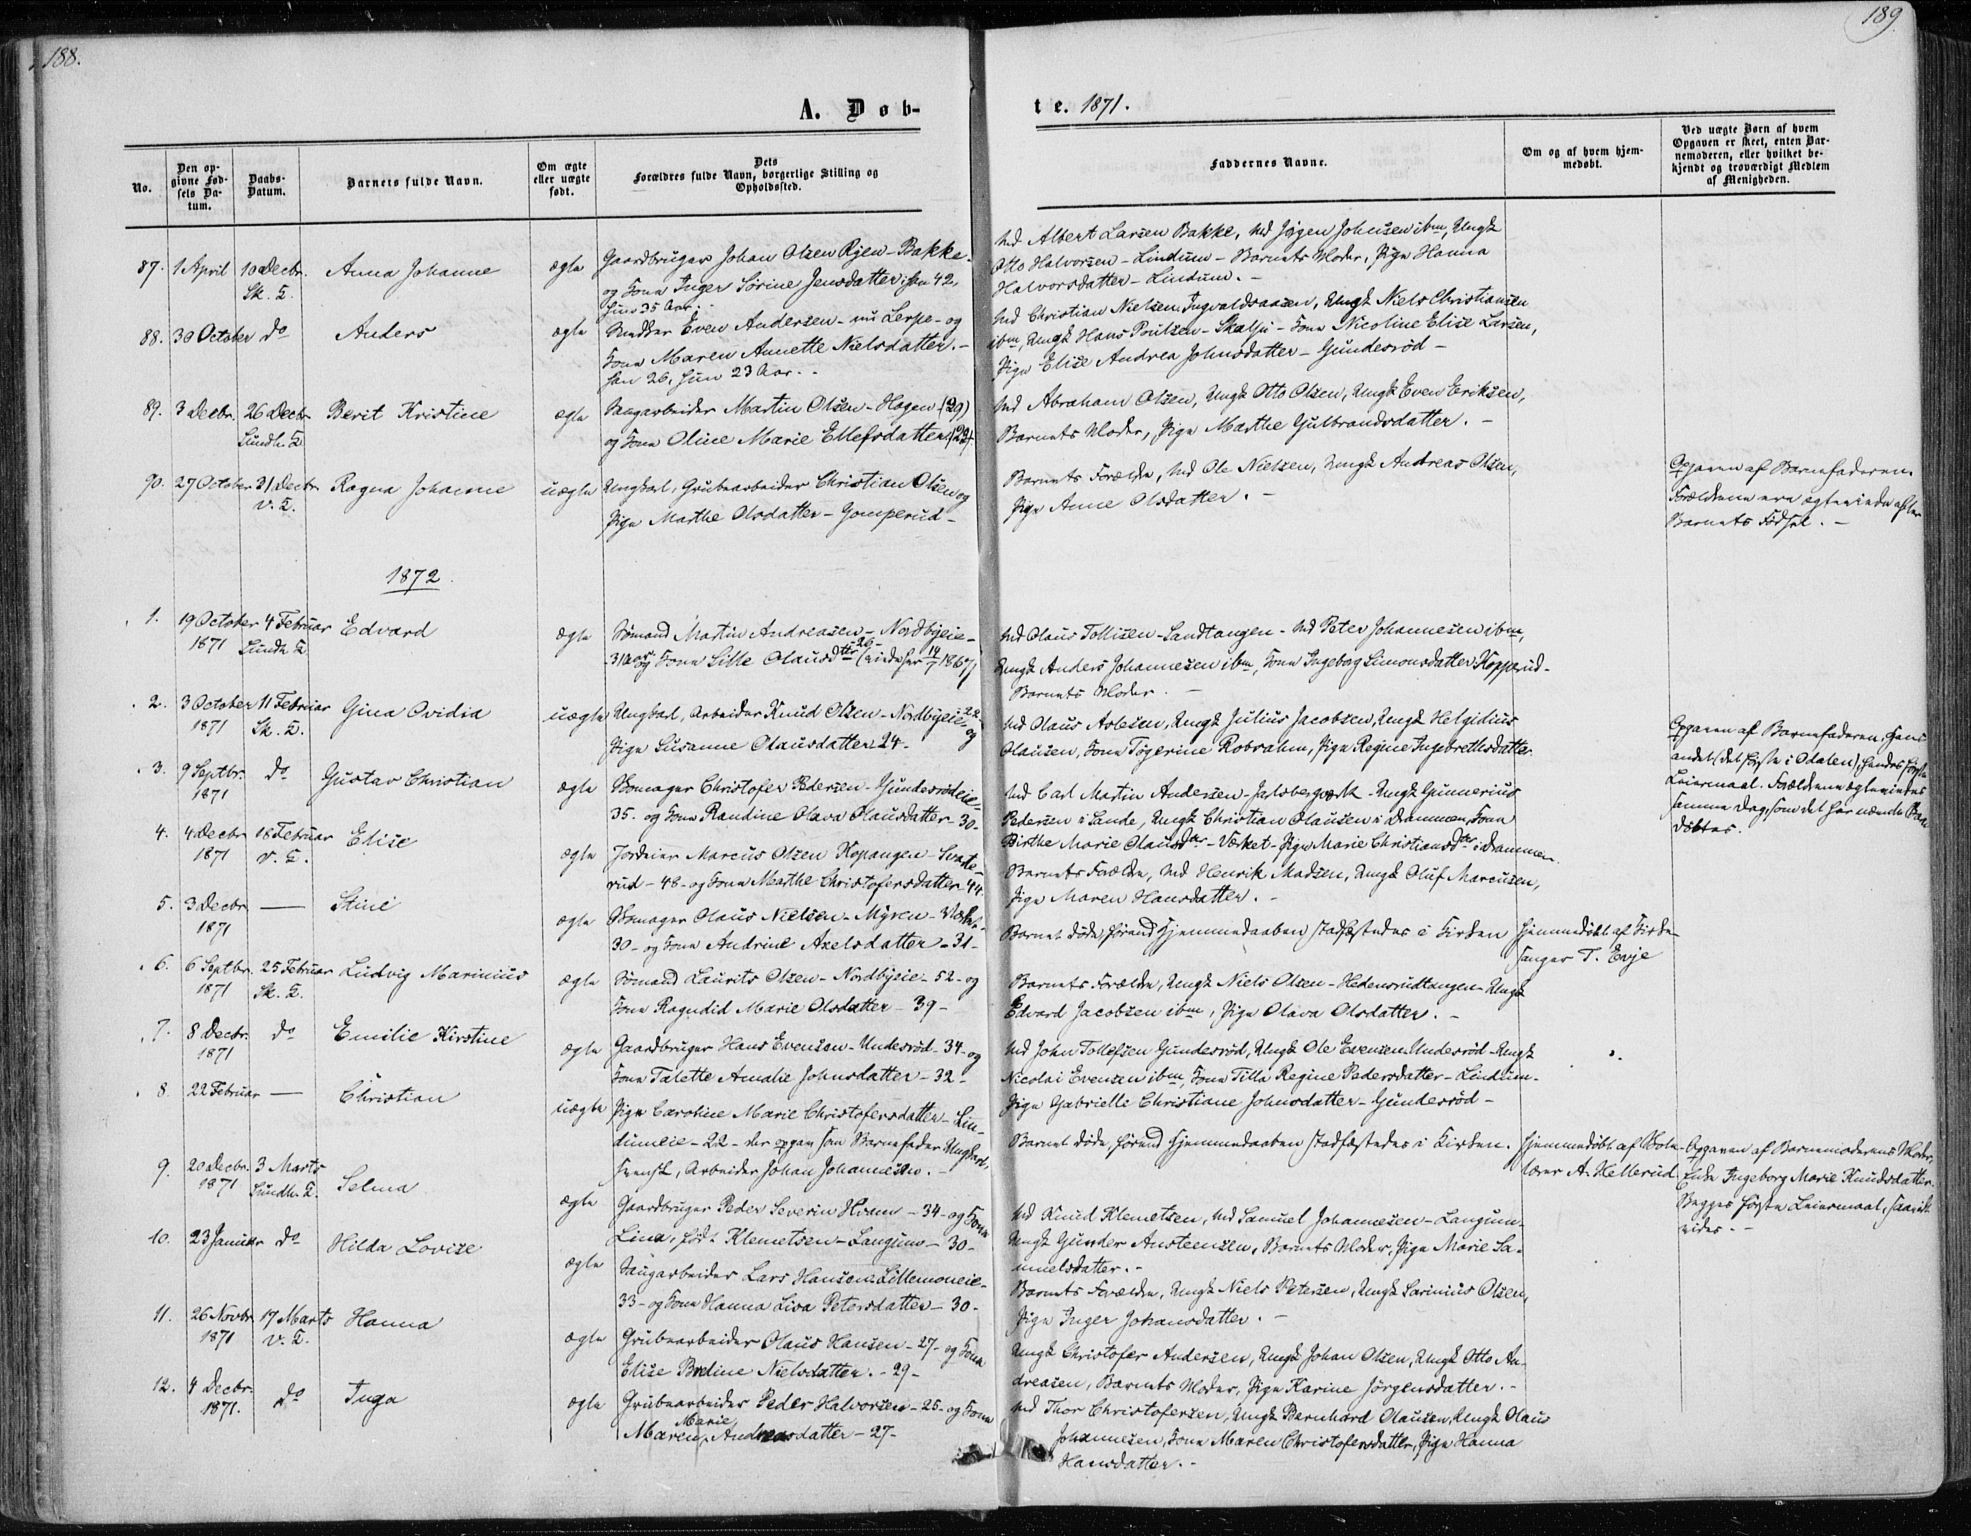 188.
189.
A. Døb-
te. 1871.
No.
Den op-
givne Fød-
sels Da-
tum.
Daabs-
Datum.
Barnets fulde Navn.
Om ægte
eller uægte
født.
Dets
Forældres fulde Navn, borgerlige Stilling og
Opholdssted.
Faddernes Navne.
Om og af hvem hjem-
medøbt.
Ved uægte Børn af hvem
Opgaven er skeet, enten Bar-
nemoderen, eller hvilket be-
kjendt og troværdigt Medlem
af Menigheden.
87. 1 April 10 Decbr. Anna Johanne ægte Gaardbruger Johan Olsen Rjen-Bakke-
Sk. K. og Kone Inger Sørine Jensdatter ibm 42,
hun 35 Aar.
Md Albert Larsen Bakke, Md Jørgen Johnsen ibm, Ungk
Otto Halvorsen - Lindum - Barnets Moder, Pige Hanna
Halvorsdatter - Lindum. -
88. 30 October do Anders ægte Even Andersen - nu Lerpe - og
Kone Maren Annette Nielsdatter. -
han 26, hun 23 Aar. -
Md Christian Nielsen Ingvaldsaasen, Ungk Niels Christiansen
ibm, Ungk Hans Poulsen - - Kone Nicoline Elise Larsen,
Pige Elise Andrea Johnsdatter - Gundesrød -
89. 3 Decbr. 26 Decbr Berit Kristine ægte Saugarbeider Martin Olsen - Hagen (29)
Sundh. K. og Kone Oline Marie Ellefsdatter (22)
Md Abraham Olsen, Ungk Otto Olsen, Ungk Even Eriksen,
Barnets Moder, Pige Marthe Gulbrandsdatter. -
90. 27 October 31 Decbr Ragna Johanne uægte Ungkarl, Grubearbeider Christian Olsen og
V. K. Pige Marthe Olsdatter - Gomperud -
Barnets Forældre, Md Ole Nielsen, Ungk Andreas Olsen,
Pige Anne Olsdatter. -
Opgaven af Barnefaderen.
Forældrene ere egteviede efter
Barnets Fødsel. -
1872.
1. 19 October 4 Februar Edvard ægte Sømand Martin Andreasen - Nordbyeie -
1871 Sundh. K. 31 Aar og Kone Sille Olausdtr 26 - (viede her 14/7 1867)
Md Olaus Tollisen - Sandtangen - Md Peter Johannesen ibm,
Ungk Anders Johannesen ibm, Kone Ingeborg Simonsdatter Kopperud -
Barnets Moder. -
2. 3 October 11 Februar Gina Ovidia uægte Ungkarl, Arbeider Knud Olsen - Nordbyeie 22 og
1871 Sk. K. Pige Susanne Olausdatter 24 -
Md Olaus Aslesen, Ungk Julius Jacobsen, Ungk Helgidius
Olausen, Kone Tøgerine Robrahn, Pige Regine Ingebrethsdatter.
Opgaven af Barnefaderen, hans
andet (det første i Odalen), hendes første
Leiermaal. Forældrene egteviedes
samme Dag, som det her nævnte Barn
døbtes.
3. 9 Septbr. do Gustav Christian ægte Skomager Christofer Pedersen - Gundesrødeie -
1871 35 - og Kone Randine Olava Olausdatter - 30 -
Md Carl Martin Andersen - Jarlsbergværk - Ungk Gunnerius
Pedersen i Sande, Ungk Christian Olausen i Drammen, Kone
Birthe Marie Olausdtr - Værket - Pige Marie Christiansdtr i Drammen.
4. 4 Decbr 16 Februar Elise ægte Jordeier Marcus Olsen Kopangen - -
1871 V. K. rud - 48 - og Kone Marthe Christofersdatter 44.
Barnets Forældre, Md Henrik Madsen, Ungk Oluf Marcusen,
Pige Maren Hansdatter. -
5. 3 Decbr. — Stine ægte Skomager Olaus Nielsen - Myren - Værket -
1871 30 - og Kone Andrine Axelsdatter - 31 -
Barnet døde, førend Hjemmedaaben stadfæstedes i Kirken
Hjemmedøbt af Kirke-
sanger T. Evje
6. 6 Septbr. 25 Februar Ludvig Marinius ægte Sømand Laurits Olsen - Nordbyeie - 52 - og
1871 Sk. K. Kone Ragndid Marie Olsdatter - 39 -
Barnets Forældre, Ungk Niels Olsen - Hedensrudtangen - Ungk
Edvard Jacobsen ibm, Pige Olava Olsdatter. -
7. 8 Decbr. do Emilie Kirstine ægte Gaardbruger Hans Evensen - Undesrød - 34 - og
1871 Kone Talette Amalie Johnsdatter - 32 -
Md John Tollefsen Gundesrød, Ungk Ole Evensen Undesrød - Ungk
Nicolai Evensen ibm, Kone Tilla Regine Pedersdatter - Lindum -
Pige Gabrielle Christiane Johnsdatter - Gundesrød -
8. 22 Februar — Christian uægte Pige Caroline Marie Christofersdatter - Lin-
dumeie - 22 - der opgav som Barnefader Ungkarl,
svensk, Arbeider Johan Johannesen. -
Barnet døde, førend Hjemmedaaben stadfæstedes i Kirken.
Hjemmedøbt af Skole-
lærer A. Hellerud.
Opgaven af Barnemoderens Moder,
Enke Ingeborg Marie Knudsdatter.
Begges første Leiermaal, saavidt
vides. -
9. 20 Decbr. 3 Marts Selma ægte Gaardbruger Peder Severin Hvam - 34 - og Kone
1871 Sundh. K. Lina, født Klemetsen - Langum - 30 -
Md Knud Klemetsen, Md Samuel Johannesen - Langum -
Ungk Gunder Ansteensen, Barnets Moder, Pige Marie Sa-
muelsdatter. -
10. 23 Januar do Hilda Lovise ægte Saugarbeider Lars Hansen Lillemoneie -
33 - og Kone Hanna Lisa Petersdatter - 30 -
Barnets Forældre, Ungk Niels Petersen, Ungk Sarinius Olsen,
Pige Inger Johansdatter. -
11. 26 Novbr. 17 Marts Hanna ægte Grubearbeider Olaus Hansen - 27 - og Kone
1871 V. K. Elise Bredine Nielsdatter. - 29 -
Ungk Christofer Andersen, Ungk Johan Olsen, Ungk Otto An-
dreasen, Barnets Moder, Pige Karine Jørgensdatter. -
12. 4 Decbr. do Inga ægte Grubearbeider Peder Halvorsen - 25 - og Kone
1871. Maren Marie Andreasdatter - 27 -
Md Thor Christofersen, Ungk Bernhard Olausen, Ungk Olaus
Johannesen, Kone Maren Christofersdatter, Pige Hanna
Hansdatter. -